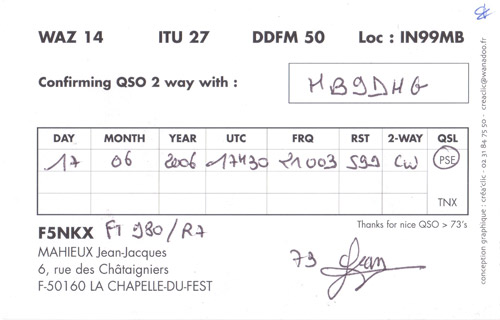 WAZ 14 ITU 27 DDFM 50 Loc : IN99MB
Confirming QSO 2 way with : HB9DHG
DAY MONTH YEAR UTC FRQ RST 2-WAY QSL
17 06 2006 17H30 21003 599 CW PSE
TNX
Thanks for nice QSO > 73's
F5NKX FT 980/R7
MAHIEUX Jean-Jacques
6, rue des Châtaigniers
F-50160 LA CHAPELLE-DU-FEST
73 Jean
conception graphique : créa'clic - 02 31 84 75 50 - creaclic@wanadoo.fr